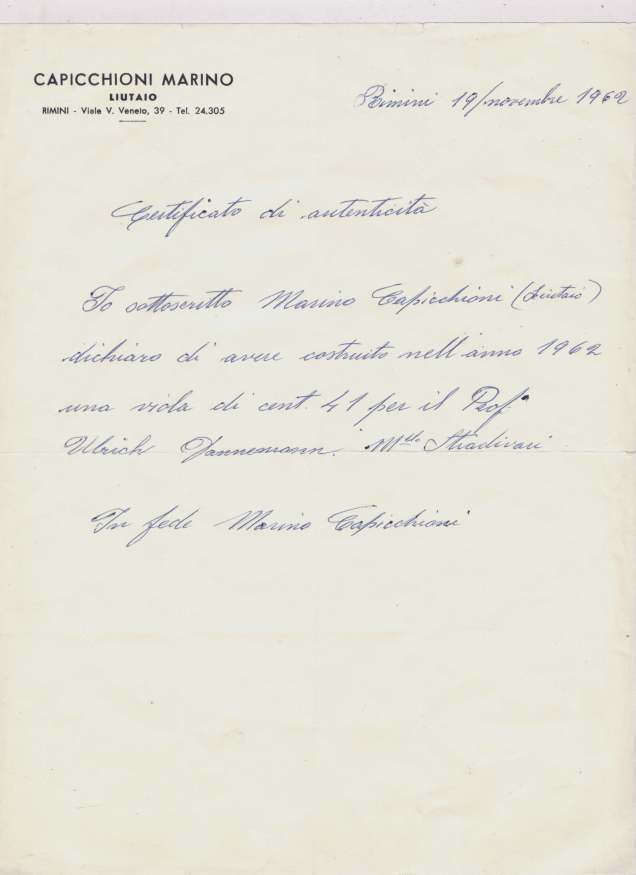 CAPICCHIONI MARINO
LIUTAIO
RIMINI - Viale V. Veneto, 39 - Tel. 24.305
Rimini 19/novembre 1962
Certificato di autenticità
Io sottoscritto Marino Capicchioni (Liutaio)
dichiaro di avere costruito nell'anno 1962
una viola di cent. 41 per il Prof.
Ulrich Dannemann. Mdlo Stradivari
In fede Marino Capicchioni